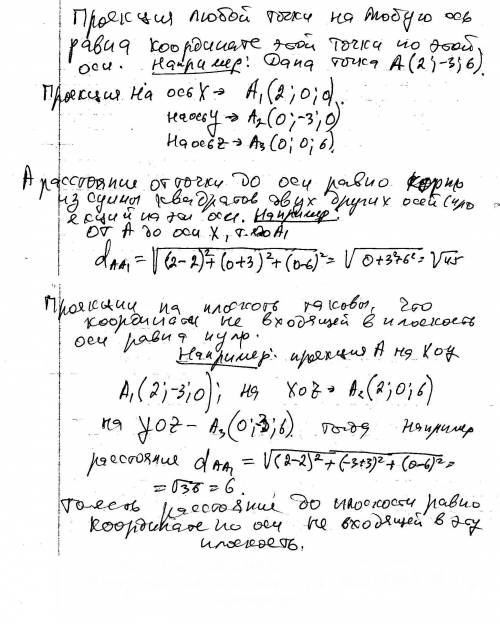 Проекция любой точки на любую ось
равна координате этой точки по этой
оси. Например: Дана точка A(2;-3;6).
Проекция на ось X→ A₁(2;0;0).
на ось y→ A₂(0;-3;0)
На ось z→ A₃(0;0;6).
А расстояние от точки до оси равно корню
из суммы квадратов двух других осей
екций на эти оси. Например:
от A до оси X, т. A₁
d_AA₁ = √(2-2)²+(0+3)²+(0-6)² = √0+3²+6² = √45
Проекции на плоскость таковы, что
координата не входящей в плоскость
оси равна нулю.
Например: проекция A на XOY
A₁(2;-3;0); на XOZ→ A₂(2;0;6)
на YOZ – A₃(0;-3;6). тогда например
расстояние d_AA₁ = √(2-2)²+(-3+3)²+(0-6)² =
= √36 = 6.
То есть расстояние до плоскости равно
координате по оси не входящей в эту
плоскость.